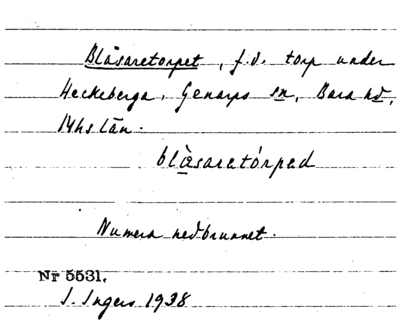 Blåsaretorpet, f.d. torp under
Heckeberga, Genarps sn, Bara hd,
Mhs län.
blåsaretórped
Numera nedbrunnet.
Nr 5531.
I. Ingers 1938